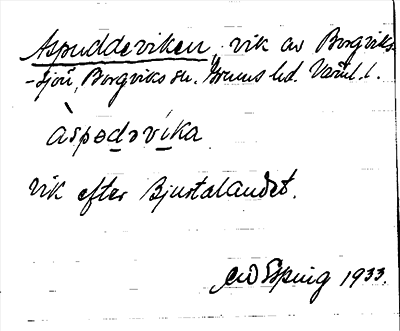 Aspuddeviken, vik av Borgviks-
-sjön, Borgviks sn. Grums hd. Värml. l.
àspədəvíka
vik efter Bjurtalandet.
Esping 1933.